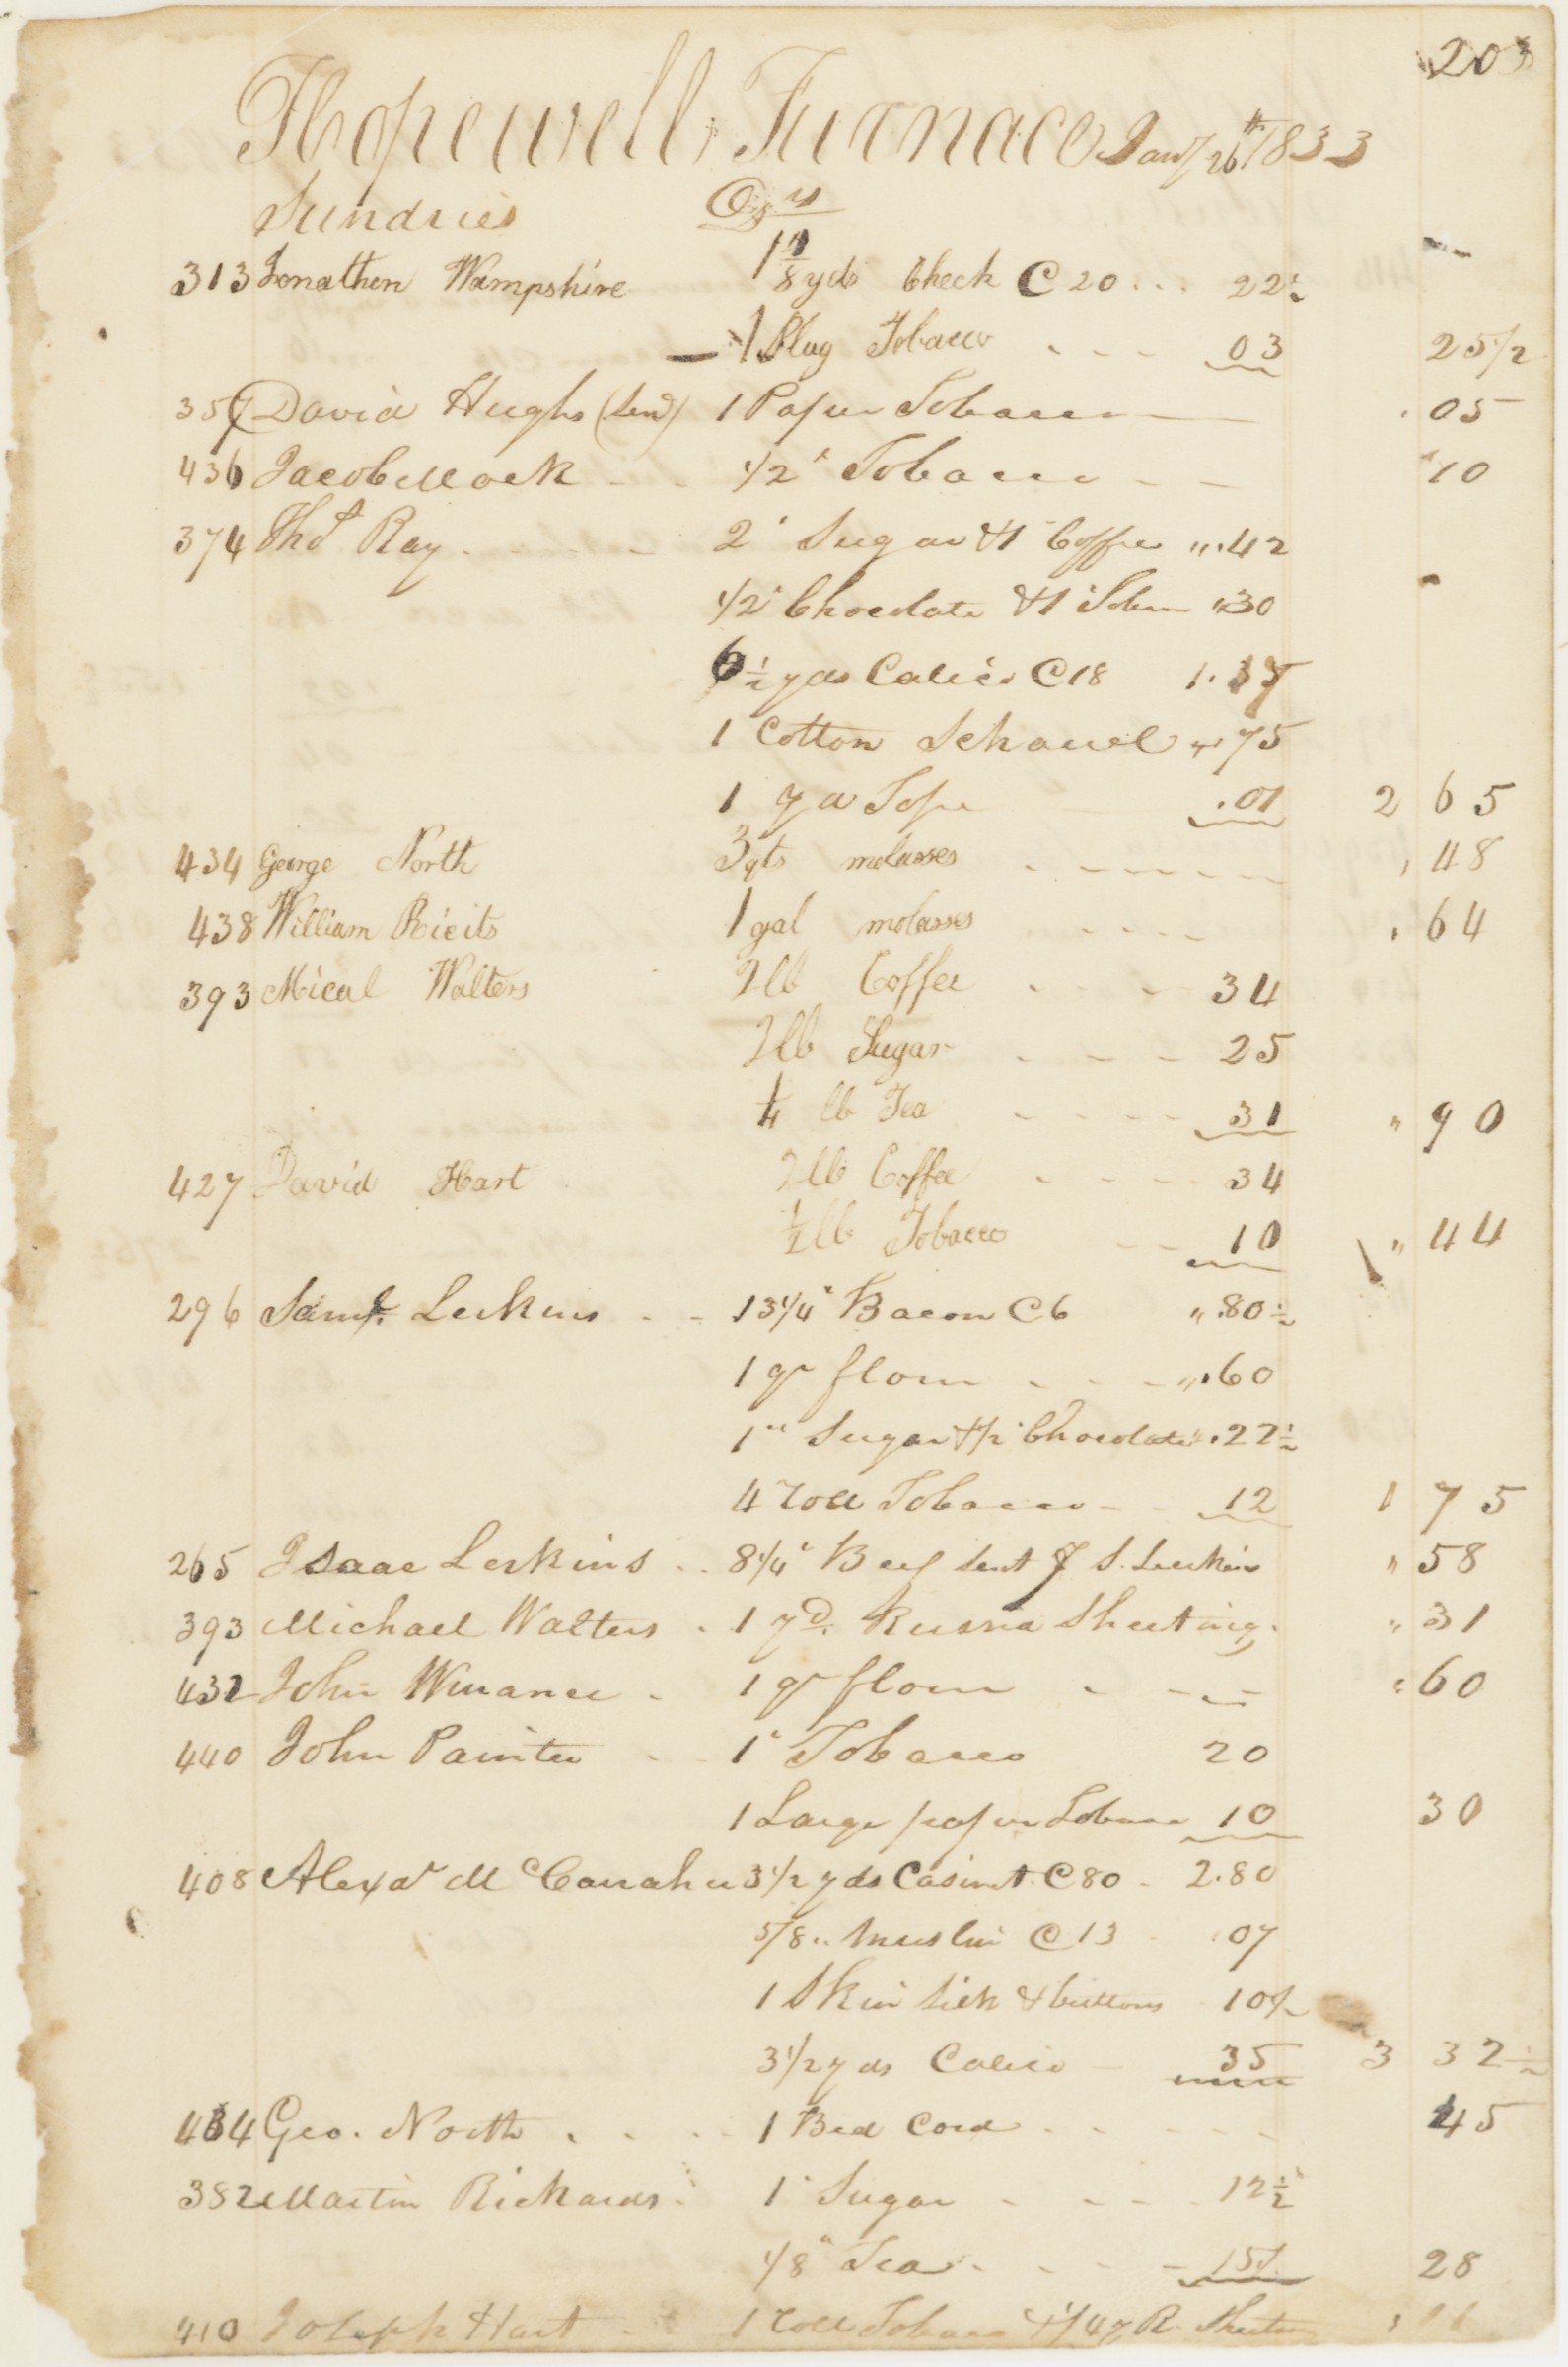 203
Hopewell Furnace Jany 26th 1833
Sundries Drs
313 Jonathen Wampshire 1 1/8 yds Check @ 20 ... 22 1/2
1 Plug Tobacco - - - 03 25 1/2
357 David Hughs (Send) 1 Paper Tobacco 05
436 Jacob Mock - - 1/2 " Tobacco - - 10
374 Thos Ray - - - 2 " Sugar & 1 " Coffee " .42
1/2 " Chocolate & 1 " Tobac " 30
6 1/2 yds Calico @ 18 1.17
1 Cotton Schawel " 75
1 yd Tape .01 2 65
434 George North 3 qts molasses - - - - - - 48
438 William Ricits 1 gal molasses - - - - 64
393 Mical Walters 2 lb Coffee - - - 34
2 lb Sugar - - - 25
1/4 lb Tea - - - - 31 " 90
427 David Hart 2 lb Coffee - - - - 34
1/2 lb Tobacco - - 10 " 44
296 Saml. Lerkins - - 13 1/4 " Bacon @ 6 " .80 1/2
1 qr flour - - - " .60
1 " Sugar & 1/2 " Chocolate " .22 1/2
4 Roll Tobacco - - 12 1 75
265 Isaac Lerkins - - 8 1/4 " Beef sent J S. Lerkins " 58
393 Michael Walters - 1 yd. Russia Sheeting. " 31
432 John Winance - 1 qr flour - - - - " 60
440 John Painter - - 1 " Tobacco 20
1 Large paper Tobacco 10 30
408 Alexdr McConahu 3 1/2 yds Casinet @ 80 - 2.80
5/8 " Muslin @ 13 - 07
1 Skein Silk & buttons 10 1/2
3 1/2 yds Calico - 35 3 32 1/2
434 Geo. North . . . - 1 Bed Cord - - - - - 45
382 Martin Rickards . 1 " Sugar - - - - 12 1/2
1/8 " Tea - - - - 15 1/2 28
410 Joseph Hart - 1 Roll Tobacco & 1/4 y R. Sheeting